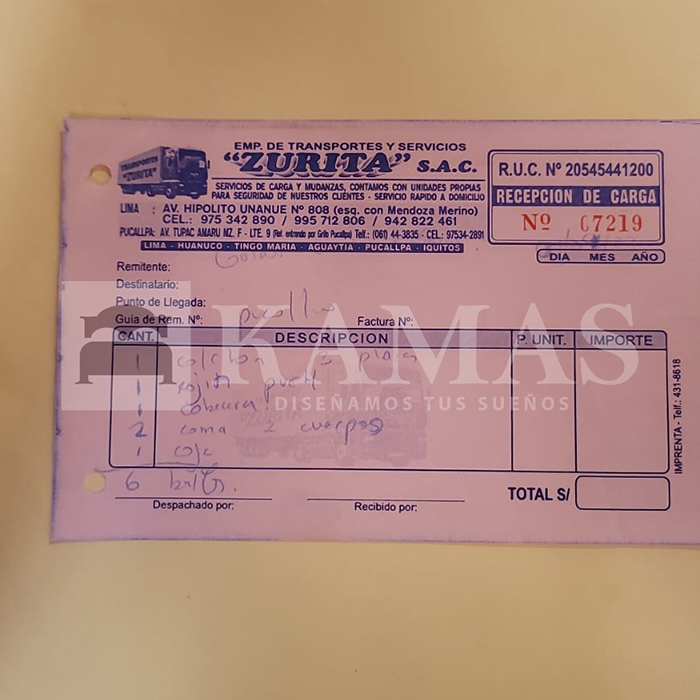 EMP. DE TRANSPORTES Y SERVICIOS
"ZURITA" S.A.C.
TRANSPORTES
"ZURITA"
SERVICIOS DE CARGA Y MUDANZAS, CONTAMOS CON UNIDADES PROPIAS
PARA SEGURIDAD DE NUESTROS CLIENTES - SERVICIO RAPIDO A DOMICILIO
LIMA : AV. HIPOLITO UNANUE Nº 808 (esq. con Mendoza Merino)
CEL.: 975 342 890 / 995 712 806 / 942 822 461
PUCALLPA: AV. TUPAC AMARU MZ. F - LTE. 9 (Ref. entrando por Grifo Pucallpa) Telf.: (061) 44-3835 - CEL.: 97534-2891
LIMA - HUANUCO - TINGO MARIA - AGUAYTIA - PUCALLPA - IQUITOS
R.U.C. Nº 20545441200
RECEPCION DE CARGA
Nº 07219
DIA MES AÑO
Remitente:
Destinatario:
Punto de Llegada:
Guía de Rem. Nº:
Factura Nº:
CANT. DESCRIPCION P. UNIT. IMPORTE
1 colchon 3 plazas
1
1 cabecera
2 cama 2 cuerpos
1
6
KAMAS
DISEÑAMOS TUS SUEÑOS
Despachado por:
Recibido por:
TOTAL S/
IMPRENTA - Telf.: 431-8618